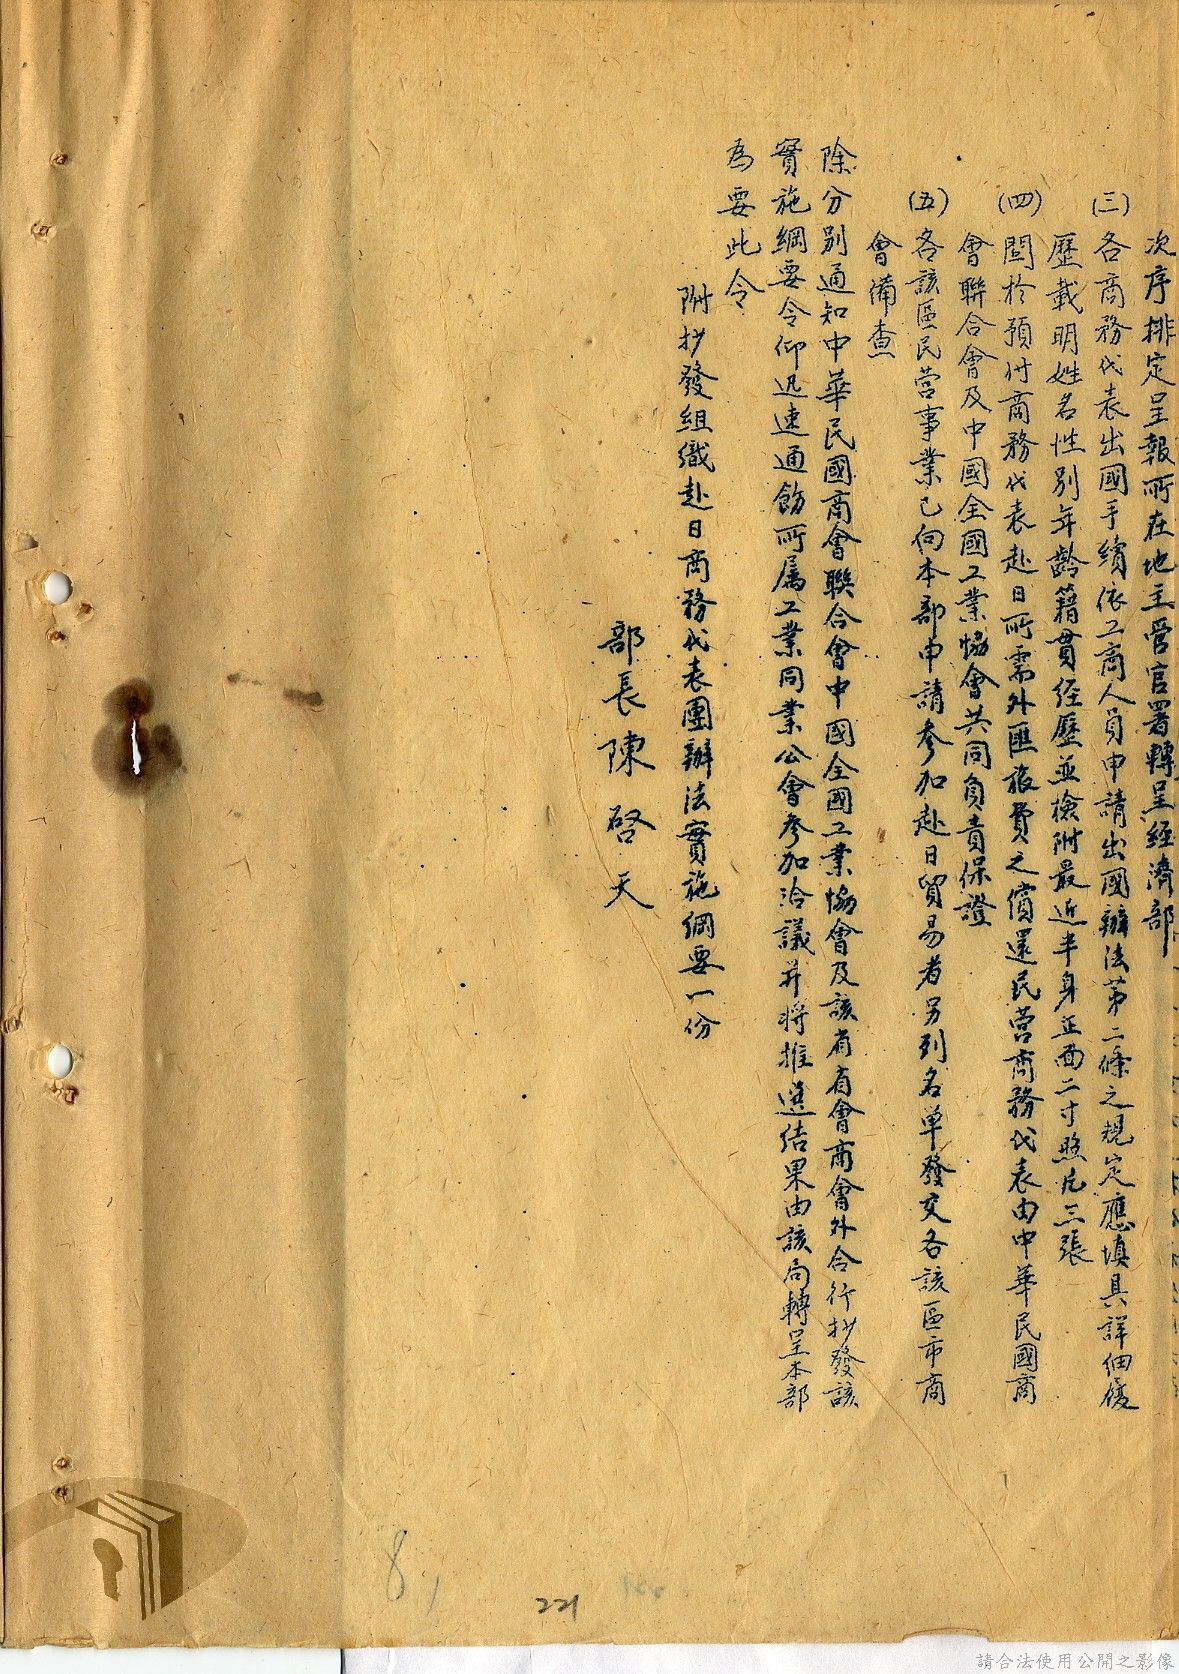 次序排定呈報所在地主管官署轉呈經濟部
(三)各商務代表出國手續依工商人員申請出國辦法第二條之規定應填具詳細履
歷載明姓名性別年齡籍貫經歷並檢附最近半身正面二寸照片三張
(四)關於預付商務代表赴日所需外匯旅費之償還民營商務代表由中華民國商
會聯合會及中國全國工業協會共同負責保證
(五)各該區民營事業已向本部申請參加赴日貿易者另列名單發交各該區市商
會備查
除分別通知中華民國商會聯合會中國全國工業協會及該省省會商會外合行抄發該
實施綱要令仰迅速通飭所屬工業同業公會參加洽議并將推選結果由該局轉呈本部
為要此令
附抄發組織赴日商務代表團辦法實施綱要一份
部長陳啓天
8,
221
請合法使用公開之影像